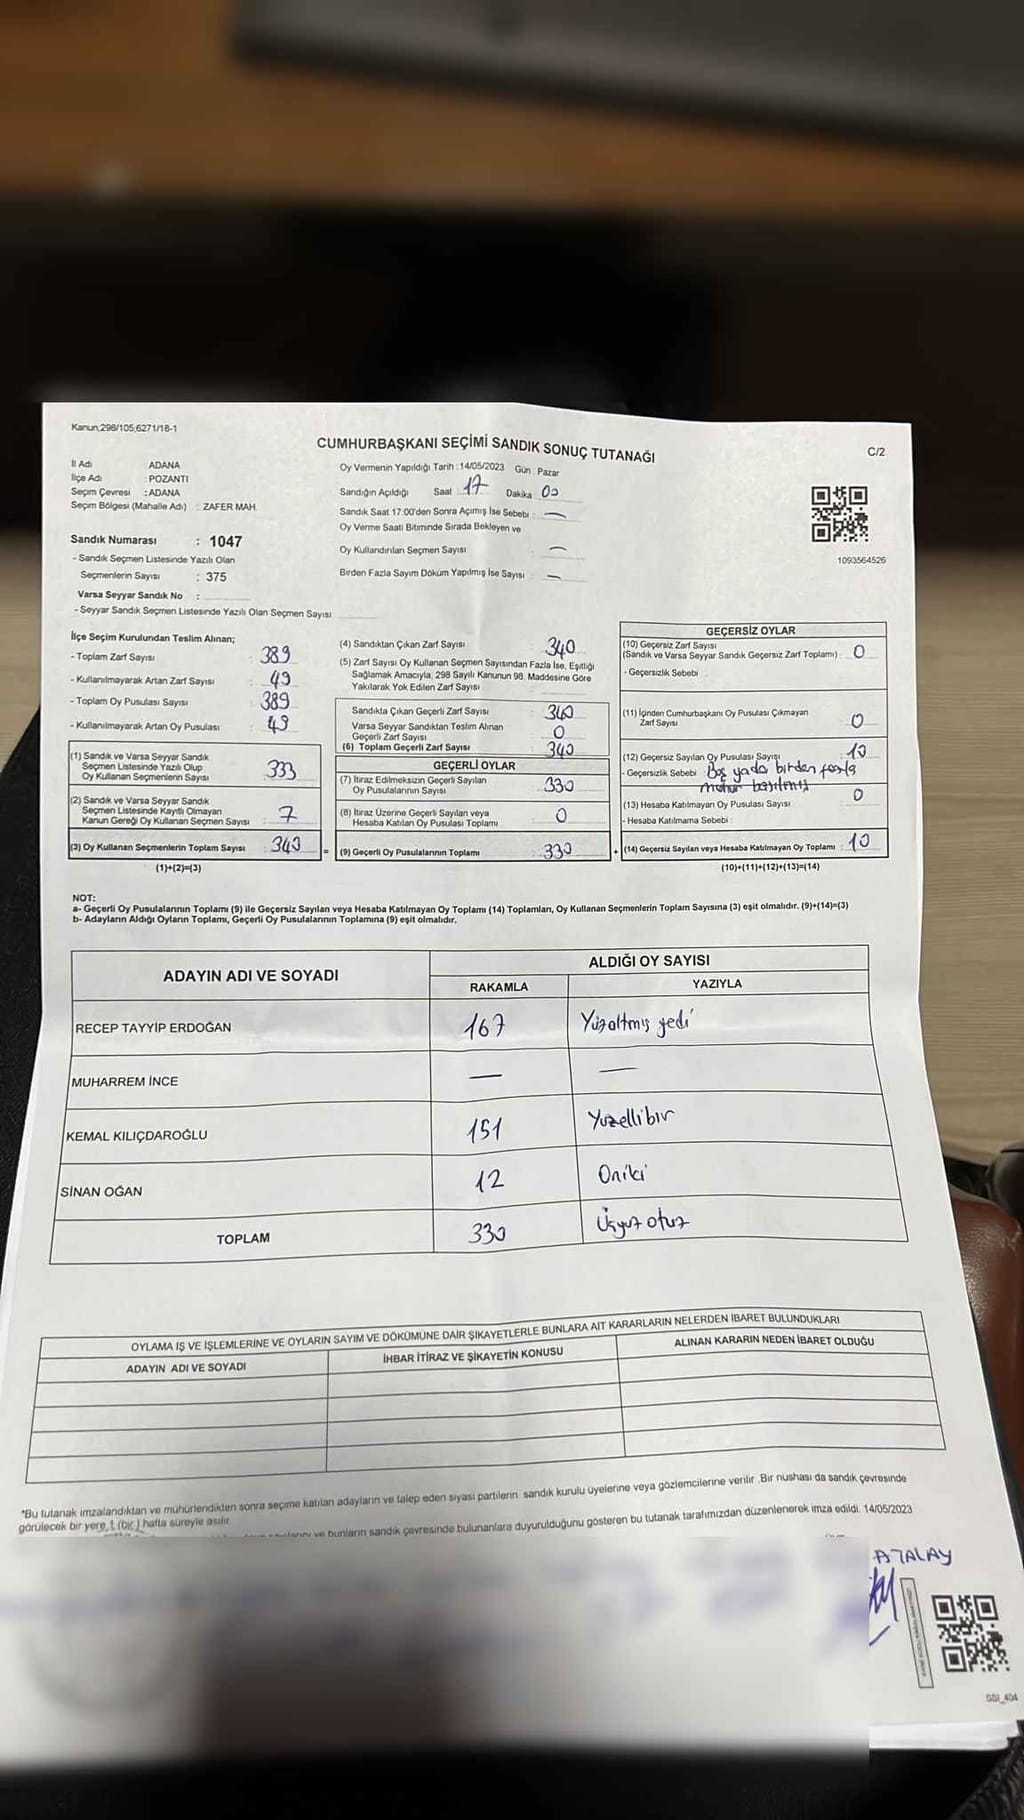 Kanun;298/105,6271/18-1
CUMHURBAŞKANI SEÇİMİ SANDIK SONUÇ TUTANAĞI
C/2
İl Adı : ADANA
İlçe Adı : POZANTI
Seçim Çevresi : ADANA
Seçim Bölgesi (Mahalle Adı) : ZAFER MAH.
Oy Vermenin Yapıldığı Tarih : 14/05/2023 Gün : Pazar
Sandığın Açıldığı Saat 17 Dakika 00
Sandık Saat 17:00'den Sonra Açımış İse Sebebi : —
Oy Verme Saati Bitiminde Sırada Bekleyen ve
Oy Kullandırılan Seçmen Sayısı —
Birden Fazla Sayım Döküm Yapılmış İse Sayısı : —
1093564526
Sandık Numarası : 1047
- Sandık Seçmen Listesinde Yazılı Olan
Seçmenlerin Sayısı : 375
Varsa Seyyar Sandık No :
- Seyyar Sandık Seçmen Listesinde Yazılı Olan Seçmen Sayısı:
İlçe Seçim Kurulundan Teslim Alınan;
- Toplam Zarf Sayısı : 389
- Kullanılmayarak Artan Zarf Sayısı : 49
- Toplam Oy Pusulası Sayısı : 389
- Kullanılmayarak Artan Oy Pusulası : 49
(1) Sandık ve Varsa Seyyar Sandık
Seçmen Listesinde Yazılı Olup
Oy Kullanan Seçmenlerin Sayısı : 333
(2) Sandık ve Varsa Seyyar Sandık
Seçmen Listesinde Kayıtlı Olmayan
Kanun Gereği Oy Kullanan Seçmen Sayısı : 7
(3) Oy Kullanan Seçmenlerin Toplam Sayısı : 340
(1)+(2)=(3)
(4) Sandıktan Çıkan Zarf Sayısı : 340
(5) Zarf Sayısı Oy Kullanan Seçmen Sayısından Fazla İse, Eşitliği
Sağlamak Amacıyla, 298 Sayılı Kanunun 98. Maddesine Göre
Yakılarak Yok Edilen Zarf Sayısı :
Sandıkta Çıkan Geçerli Zarf Sayısı : 340
Varsa Seyyar Sandıktan Teslim Alınan
Geçerli Zarf Sayısı : 0
(6) Toplam Geçerli Zarf Sayısı : 340
GEÇERLİ OYLAR
(7) İtiraz Edilmeksizin Geçerli Sayılan
Oy Pusulalarının Sayısı : 330
(8) İtiraz Üzerine Geçerli Sayılan veya
Hesaba Katılan Oy Pusulası Toplamı : 0
= (9) Geçerli Oy Pusulalarının Toplamı : 330
GEÇERSİZ OYLAR
(10) Geçersiz Zarf Sayısı
(Sandık ve Varsa Seyyar Sandık Geçersiz Zarf Toplamı) : 0
- Geçersizlik Sebebi :
(11) İçinden Cumhurbaşkanı Oy Pusulası Çıkmayan
Zarf Sayısı : 0
(12) Geçersiz Sayılan Oy Pusulası Sayısı : 10
- Geçersizlik Sebebi : Boş yada birden fazla
mühür basılmış
(13) Hesaba Katılmayan Oy Pusulası Sayısı : 0
- Hesaba Katılmama Sebebi :
+ (14) Geçersiz Sayılan veya Hesaba Katılmayan Oy Toplamı : 10
(10)+(11)+(12)+(13)=(14)
NOT:
a- Geçerli Oy Pusulalarının Toplamı (9) ile Geçersiz Sayılan veya Hesaba Katılmayan Oy Toplamı (14) Toplamları, Oy Kullanan Seçmenlerin Toplam Sayısına (3) eşit olmalıdır. (9)+(14)=(3)
b- Adayların Aldığı Oyların Toplamı, Geçerli Oy Pusulalarının Toplamına (9) eşit olmalıdır.
ADAYIN ADI VE SOYADI
ALDIĞI OY SAYISI
RAKAMLA YAZIYLA
RECEP TAYYİP ERDOĞAN 167 Yüzaltmış yedi
MUHARREM İNCE — —
KEMAL KILIÇDAROĞLU 151 Yüzellibir
SİNAN OĞAN 12 Oniki
TOPLAM 330 Üçyüz otuz
OYLAMA İŞ VE İŞLEMLERİNE VE OYLARIN SAYIM VE DÖKÜMÜNE DAİR ŞİKAYETLERLE BUNLARA AİT KARARLARIN NELERDEN İBARET BULUNDUKLARI
ADAYIN ADI VE SOYADI İHBAR İTİRAZ VE ŞİKAYETİN KONUSU ALINAN KARARIN NEDEN İBARET OLDUĞU
*Bu tutanak imzalandıktan ve mühürlendikten sonra seçime katılan adayların ve talep eden siyasi partilerin sandık kurulu üyelerine veya gözlemcilerine verilir .Bir nüshası da sandık çevresinde
görülecek bir yere 1 (bir) hafta süreyle asılır.
ve bunların sandık çevresinde bulunanlara duyurulduğunu gösteren bu tutanak tarafımızdan düzenlenerek imza edildi. 14/05/2023
ATALAY
SSI_404